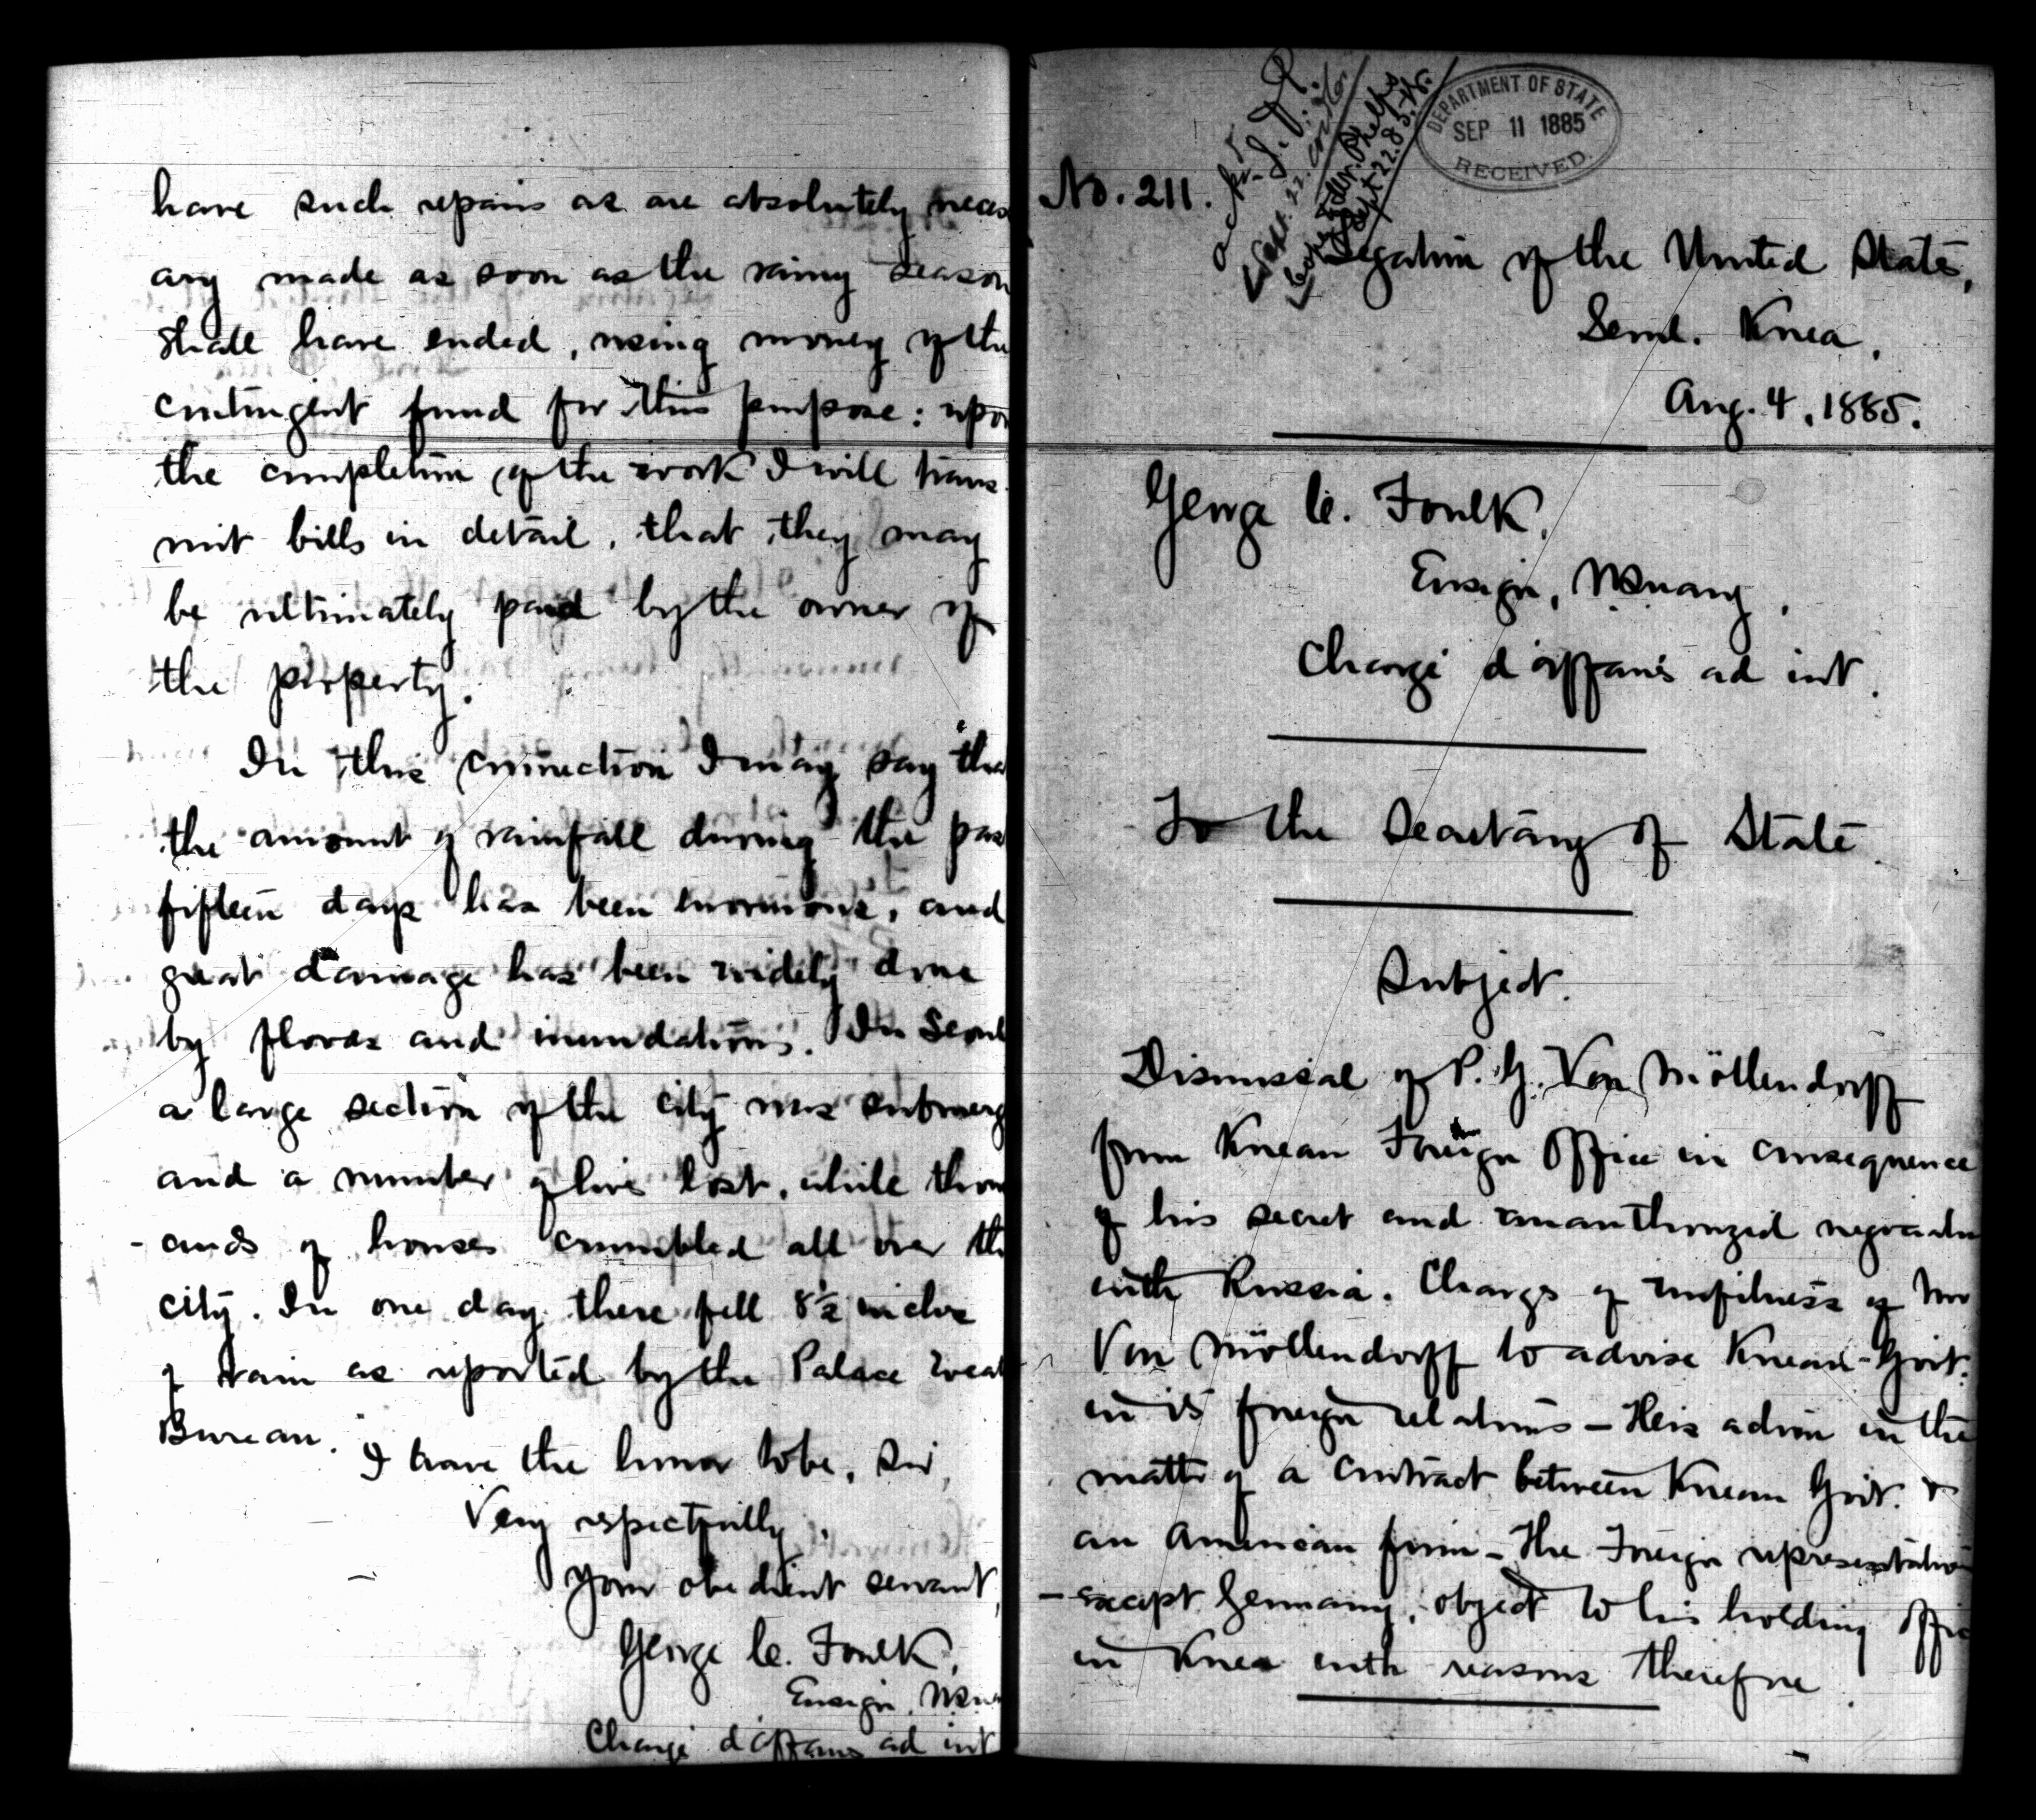 have such repairs as are absolutely necess
ary made as soon as the rainy season
shall have ended, using money of the
contingent fund for this purpose: upon
the completion of the work I will trans-
mit bills in detail, that they may
be ultimately paid by the owner of
the property.
In this connection I may say tha
the amount of rainfall during the pas
fifteen days has been enormous, and
great damage has been widely done
by floods and inundations. In Seoul
a large section of the city was submerg
and a number of lives lost, while thous
-ands of houses crumbled all over the
city. In one day there fell 8½ inches
of rain as reported by the Palace Weat
Bureau.
I have the honor to be, Sir,
Very respectfully,
Your obedient servant,
George C. Foulk,
Ensign, U.S.N.
Chargé d'affaires ad int
DEPARTMENT OF STATE
SEP 11 1885
RECEIVED.
No. 211.
Legation of the United States,
Seoul. Korea,
Aug. 4, 1885.
George C. Foulk,
Ensign, U.S. Navy,
Chargé d'affaires ad int.
To the Secretary of State.
Subject.
Dismissal of P. G. Von Möllendorff
from Korean Foreign Office in consequence
of his secret and unauthorized negociatio
with Russia. Charges of unfitness of Mr
Von Möllendorff to advise Korean Govt.
in its foreign relations – His action in the
matter of a contract between Korean Govt. &
an American firm – The Foreign representatives
– except Germany, object to his holding office
in Korea with reasons therefore.